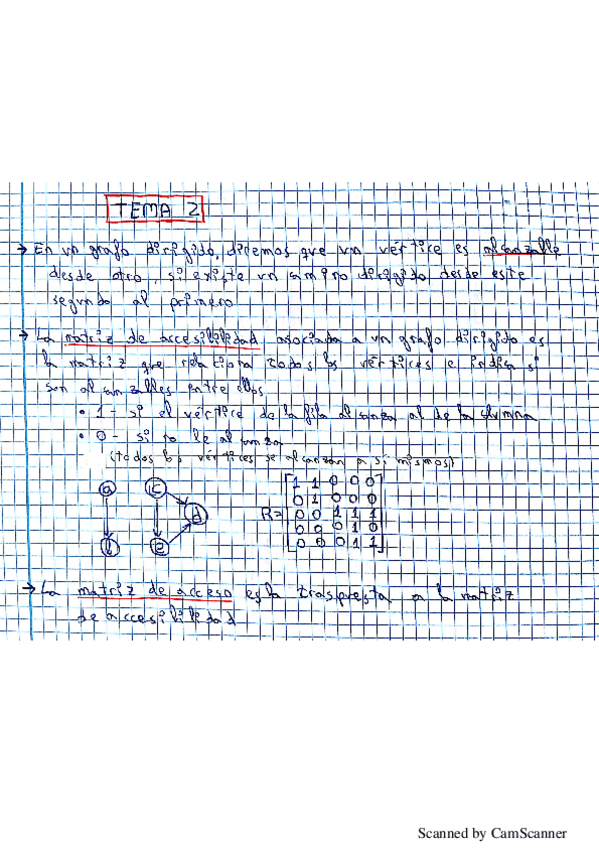 TEMA 2
→ En un grafo dirigido, diremos que un vértice es alcanzable
desde otro, si existe un camino dirigido desde este
segundo al primero
→ La matriz de accesibilidad asociada a un grafo dirigido es
la matriz que relaciona todos los vértices e indica si
son alcanzables entre ellos
• 1 - si el vértice de la fila alcanza al de la columna
• 0 - si no le alcanza
(todos los vértices se alcanzan a sí mismos)
a c d b e
R=
1 1 0 0 0
0 1 0 0 0
0 0 1 1 1
0 0 0 1 0
0 0 0 1 1
→ La matriz de acceso es la traspuesta a la matriz
de accesibilidad
Scanned by CamScanner